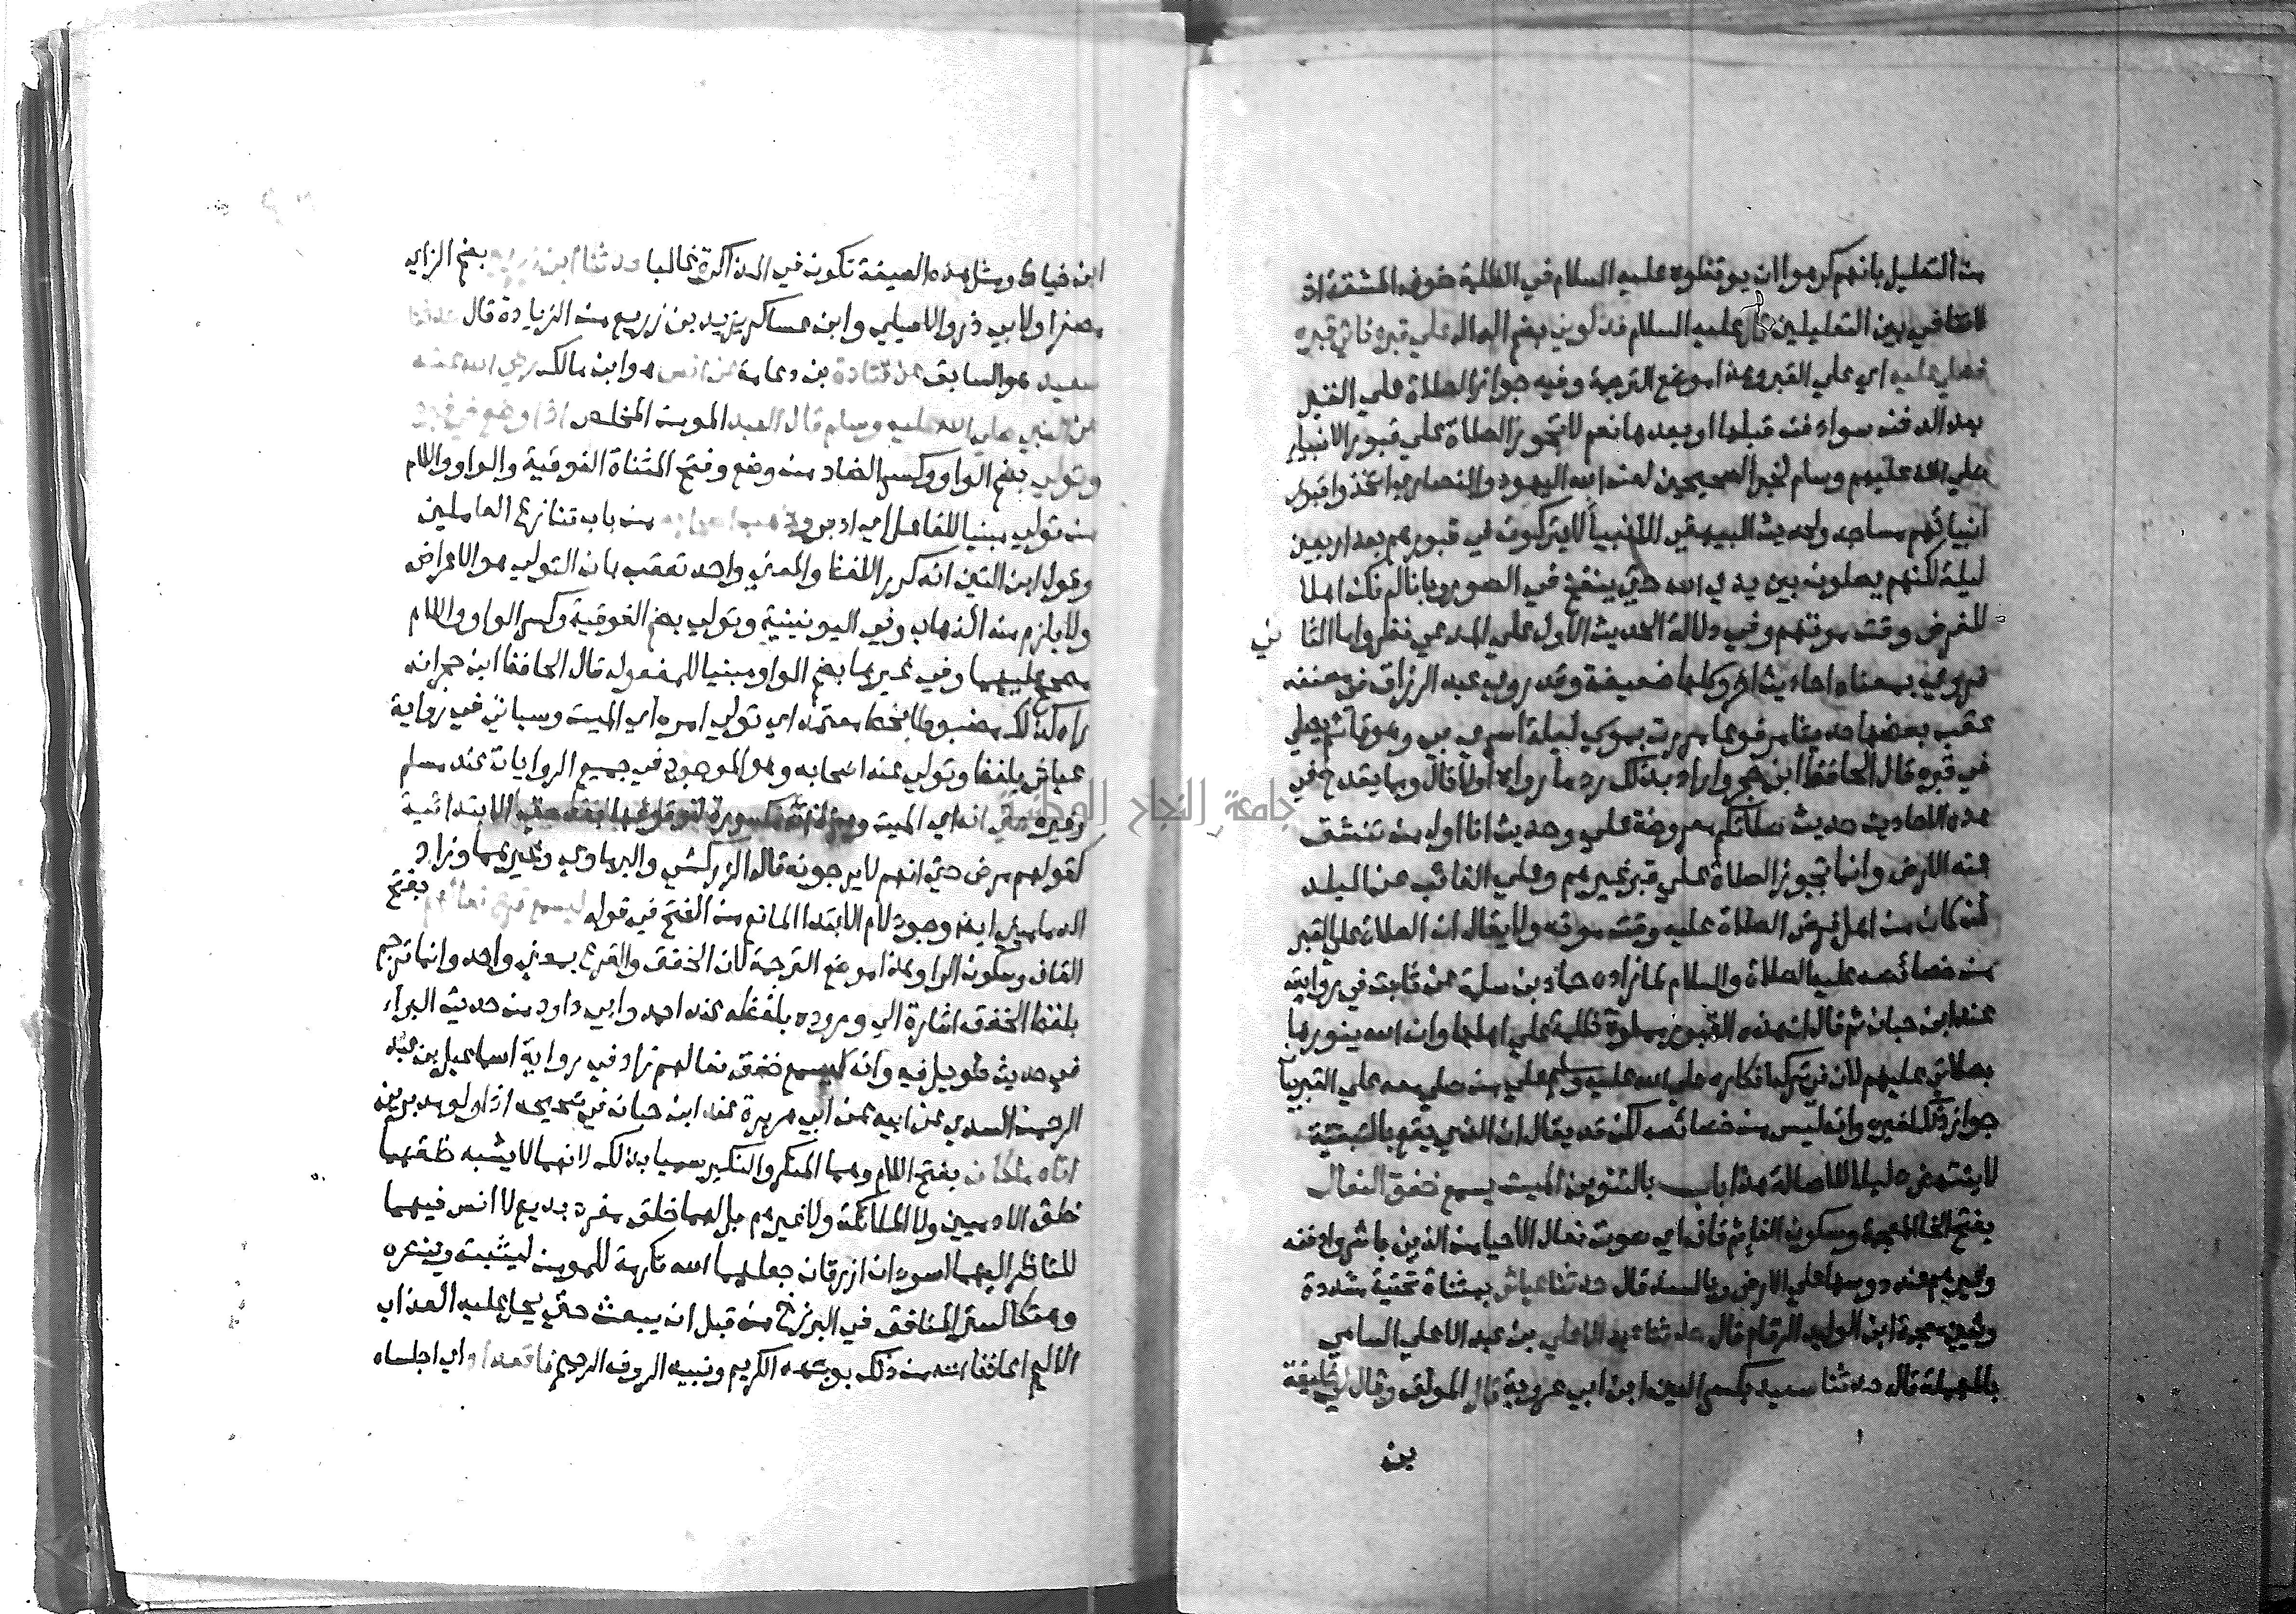 من التعليل بانهم كرهوا ان يوقظوه عليه السلام في الظلمة خوف المشقة اذ
لا تنافي بين التعليلين قال عليه السلام فدلوني بضم الدال على قبره فاتى قبره
فصلى عليه اي على القبر وهذا موضع الترجمة وفيه جواز الصلاة على القبر
بعد الدفن سواء دفن قبلها او بعدها نعم لا تجوز الصلاة على قبور الانبياء
صلى الله عليهم وسلم لخبر الصحيحين لعن الله اليهود والنصارى اتخذوا قبور
انبيائهم مساجد ولحديث البيهقي الانبياء لا يتركون في قبورهم بعد اربعين
ليلة لكنهم يصلون بين يدي الله حتى ينفخ في الصور وبانا لم نكن اهلا
للفرض وقت موتهم وفي دلالة الحديث الاول على المدعى نظر واما الثاني
فروي بمعناه احاديث اخر وكلها ضعيفة وقد روى عبد الرزاق في مصنفه
عقب بعضها حديثا مرفوعا مررت بموسى ليلة اسري بي وهو قائم يصلي
في قبره قال الحافظ ابن حجر واراد بذلك رد ما رواه اولا قال ومما يقدح في
هذه الاحاديث حديث صلاتكم معروضة علي وحديث انا اول من تنشق
عنه الارض وانما تجوز الصلاة على قبر غيرهم وعلى الغائب عن البلد
لمن كان من اهل فرض الصلاة عليه وقت موته ولا يقال ان الصلاة على القبر
من خصائصه عليه الصلاة والسلام لما زاده حماد بن سلمة عن ثابت في روايته
عند ابن حبان ثم قال ان هذه القبور مملوة ظلمة على اهلها وان الله ينورها
بصلاتي عليهم لان في ترك انكاره صلى الله عليه وسلم على من صلى معه على القبر بيان
جواز ذلك لغيره وانه ليس من خصائصه لكن قد يقال ان الذي يقع بالتبعية
لا ينتهض دليلا للاصالة هذا باب بالتنوين الميت يسمع خفق النعال
بفتح الخاء المعجمة وسكون الفاء ثم قاف اي صوت نعال الاحياء من الذين باشروا دفنه
وغيرهم عند دوسها على الارض وبالسند قال حدثنا عياش بمثناة تحتية مشددة
وشين معجمة ابن الوليد الرقام قال حدثنا عبد الاعلى بن عبد الاعلى السامي
بالمهملة قال حدثنا سعيد بكسر العين ابن ابي عروبة قال المؤلف وقال لي خليفة
بن
ابن خياط ومثل هذه الصيغة تكون في المذاكرة غالبا حدثنا ابن زريع بضم الزاي
مصغرا ولابي ذر والاصيلي وابن عساكر يزيد بن زريع من الزيادة قال حدثنا
سعيد هو السابق عن قتادة بن دعامة عن انس هو ابن مالك رضي الله عنه
عن النبي صلى الله عليه وسلم قال العبد المومن المخلص اذا وضع في قبره
وتولى بضم الواو وكسر الضاد من وضع وفتح المثناة الفوقية والواو واللام
من تولى مبنيا للفاعل اي ادبر وذهب اصحابه من باب تنازع العاملين
وقول ابن التين انه كرر اللفظ والمعنى واحد تعقب بان التولي هو الاعراض
ولا يلزم منه الذهاب وفي اليونينية وتولي بضم الفوقية وكسر الواو واللام
مصحح عليهما وفي غيرها بضم الواو مبنيا للمفعول قال الحافظ ابن حجر انه
راه كذلك مضبوطا بخط معتمد اي تولى امره اي الميت وسياتي في رواية
عياش بلفظ وتولى عنه اصحابه وهو الموجود في جميع الروايات عند مسلم
وغيره حتى انه اي الميت وهمزة انه مكسورة لوقوعها بعد حتى الابتدائية
كقولهم مرض حتى انهم لا يرجونه قاله الزركشي والبرماوي وغيرهما وزاد
الدماميني ايضا وجود لام الابتدا المانع من الفتح في قوله ليسمع قرع نعالهم بفتح
القاف وسكون الراء وهذا موضع الترجمة لان الخفق والقرع بمعنى واحد وانما ترجم
بلفظ الخفق اشارة الى وروده بلفظه عند احمد وابي داود من حديث البراء
في حديث طويل فيه وانه ليسمع خفق نعالهم زاد في رواية اسماعيل بن عبد
الرحمن السدي عن ابيه عن ابي هريرة عند ابن حبان في صحيحه اذا ولوا مدبرين
اتاه ملكان بفتح اللام وهما المنكر والنكير سميا بذلك لانهما لا يشبه خلقهما
خلق الادميين ولا الملائكة ولا غيرهم بل لهما خلق مفرد بديع لا انس فيهما
للناظر اليهما اسودان ازرقان جعلهما الله تكرمة للمومن ليثبته وينصره
وهتكا لستر المنافق في البرزخ من قبل ان يبعث حتى يحل عليه العذاب
الاليم اعاذنا الله من ذلك بوجهه الكريم ونبيه الروف الرحيم فاقعداه اي اجلساه
جامعة النجاح الوطنية